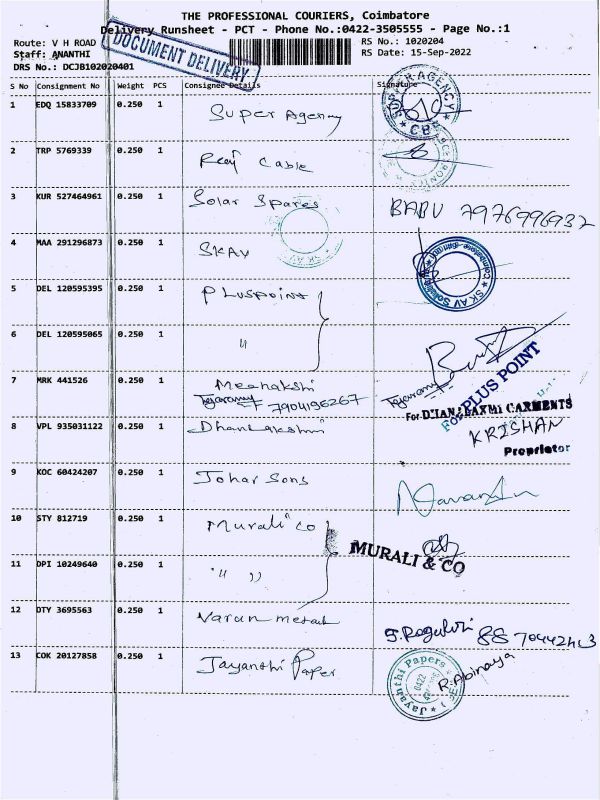 THE PROFESSIONAL COURIERS, Coimbatore
Delivery Runsheet - PCT - Phone No.:0422-3505555 - Page No.:1
Route: V H ROAD
RS No.: 1020204
Staff: ANANTHI
RS Date: 15-Sep-2022
DRS No.: DCJB102020401
DOCUMENT DELIVERY
S No Consignment No Weight PCS Consignee Details Signature
1 EDQ 15833709 0.250 1 Super Agency
SUPER AGENCY CBE
2 TRP 5769339 0.250 1 Cable
3 KUR 527464961 0.250 1 Solar Spares BABU 7976996937
SKAV
4 MAA 291296873 0.250 1 SKAV
SKAV
5 DEL 120595395 0.250 1 Pluspoint
6 DEL 120595065 0.250 1 "
For PLUS POINT
7 MRK 441526 0.250 1 Meenakshi
7904196267
For DHANALAXMI GARMENTS
8 VPL 935031122 0.250 1 Dhanlakshmi KRISHAN
Proprietor
9 KOC 60424207 0.250 1 Johar Sons
10 STY 812719 0.250 1 Murali Co
MURALI & CO
11 DPI 10249640 0.250 1 " "
12 DTY 3695563 0.250 1 Varun metal
13 COK 20127858 0.250 1 Jayanthi Paper
Jayanthi Papers
0422
R. Abinaya